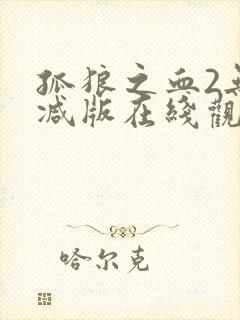 孤狼之血2
减版在綫觀
哈尔克